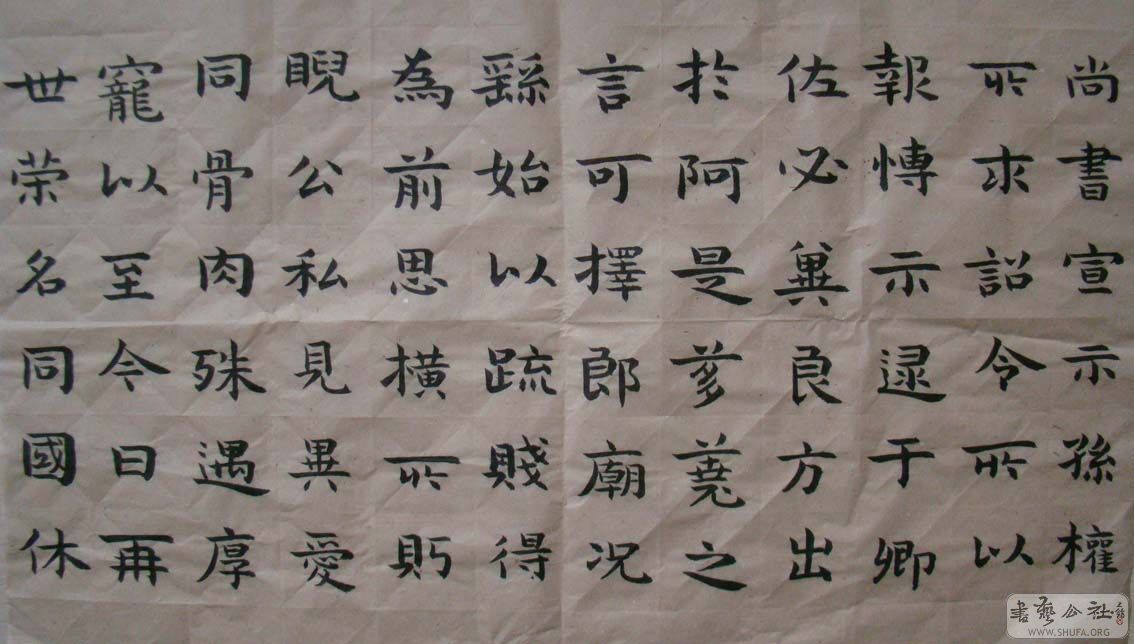 尚書宣示孫權
所求詔令所以
報博示逮于卿
佐必冀良方出
於阿是芻蕘之
言可擇郎廟况
繇始以疏賤得
為前思橫所眄
睨公私見異愛
同骨肉殊遇厚
寵以至今日再
世荣名同國休
書藝公社
WWW.SHUFA.ORG